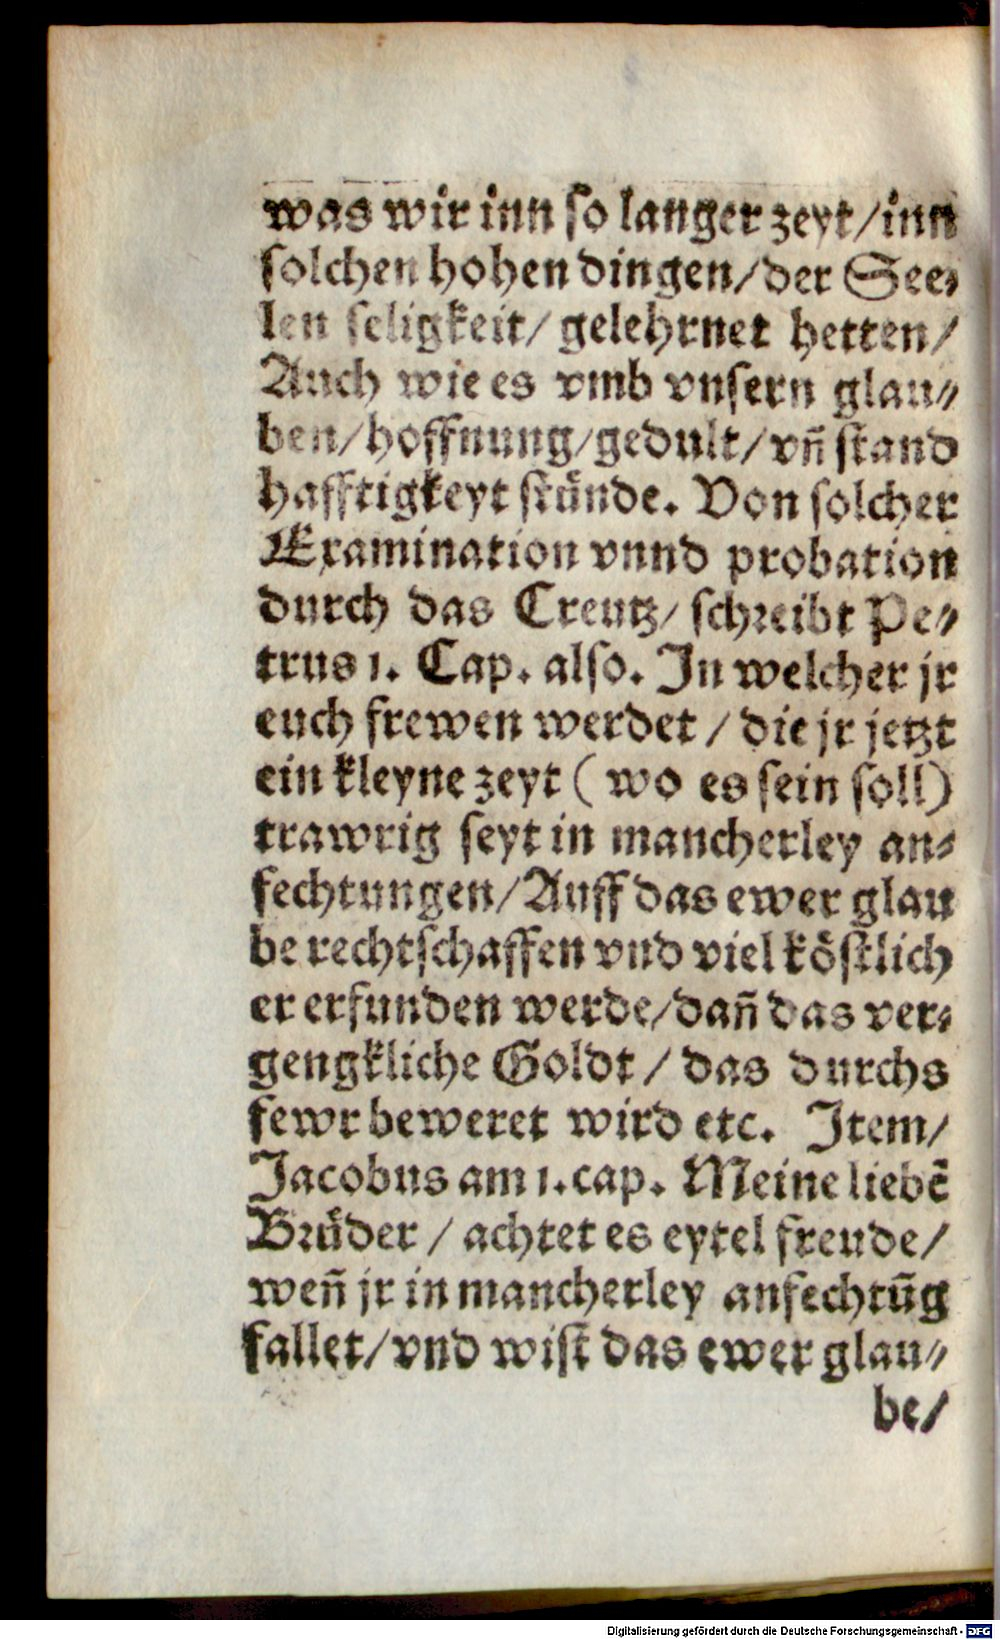 was wir inn so langer zeyt/inn
solchen hohen dingen/der See-
len seligkeit/ gelehrnet hetten/
Auch wie es vmb vnsern glau-
ben/hoffnung/gedult/vñ stand
hafftigkeyt stünde. Von solcher
Examination vnnd probation
durch das Creutz/ schreibt Pe-
trus 1. Cap. also. In welcher jr
euch frewen werdet / die jr jetzt
ein kleyne zeyt ( wo es sein soll)
trawrig seyt in mancherley an-
fechtungen/Auff das ewer glau
be rechtschaffen vnd viel köstlich
er erfunden werde/dañ das ver-
gengkliche Goldt / das durchs
fewr beweret wird etc. Item/
Jacobus am 1.cap. Meine liebẽ
Brüder / achtet es eytel freude/
weñ jr in mancherley anfechtũg
fallet/vnd wist das ewer glau-
be/
Digitalisierung gefördert durch die Deutsche Forschungsgemeinschaft - DFG